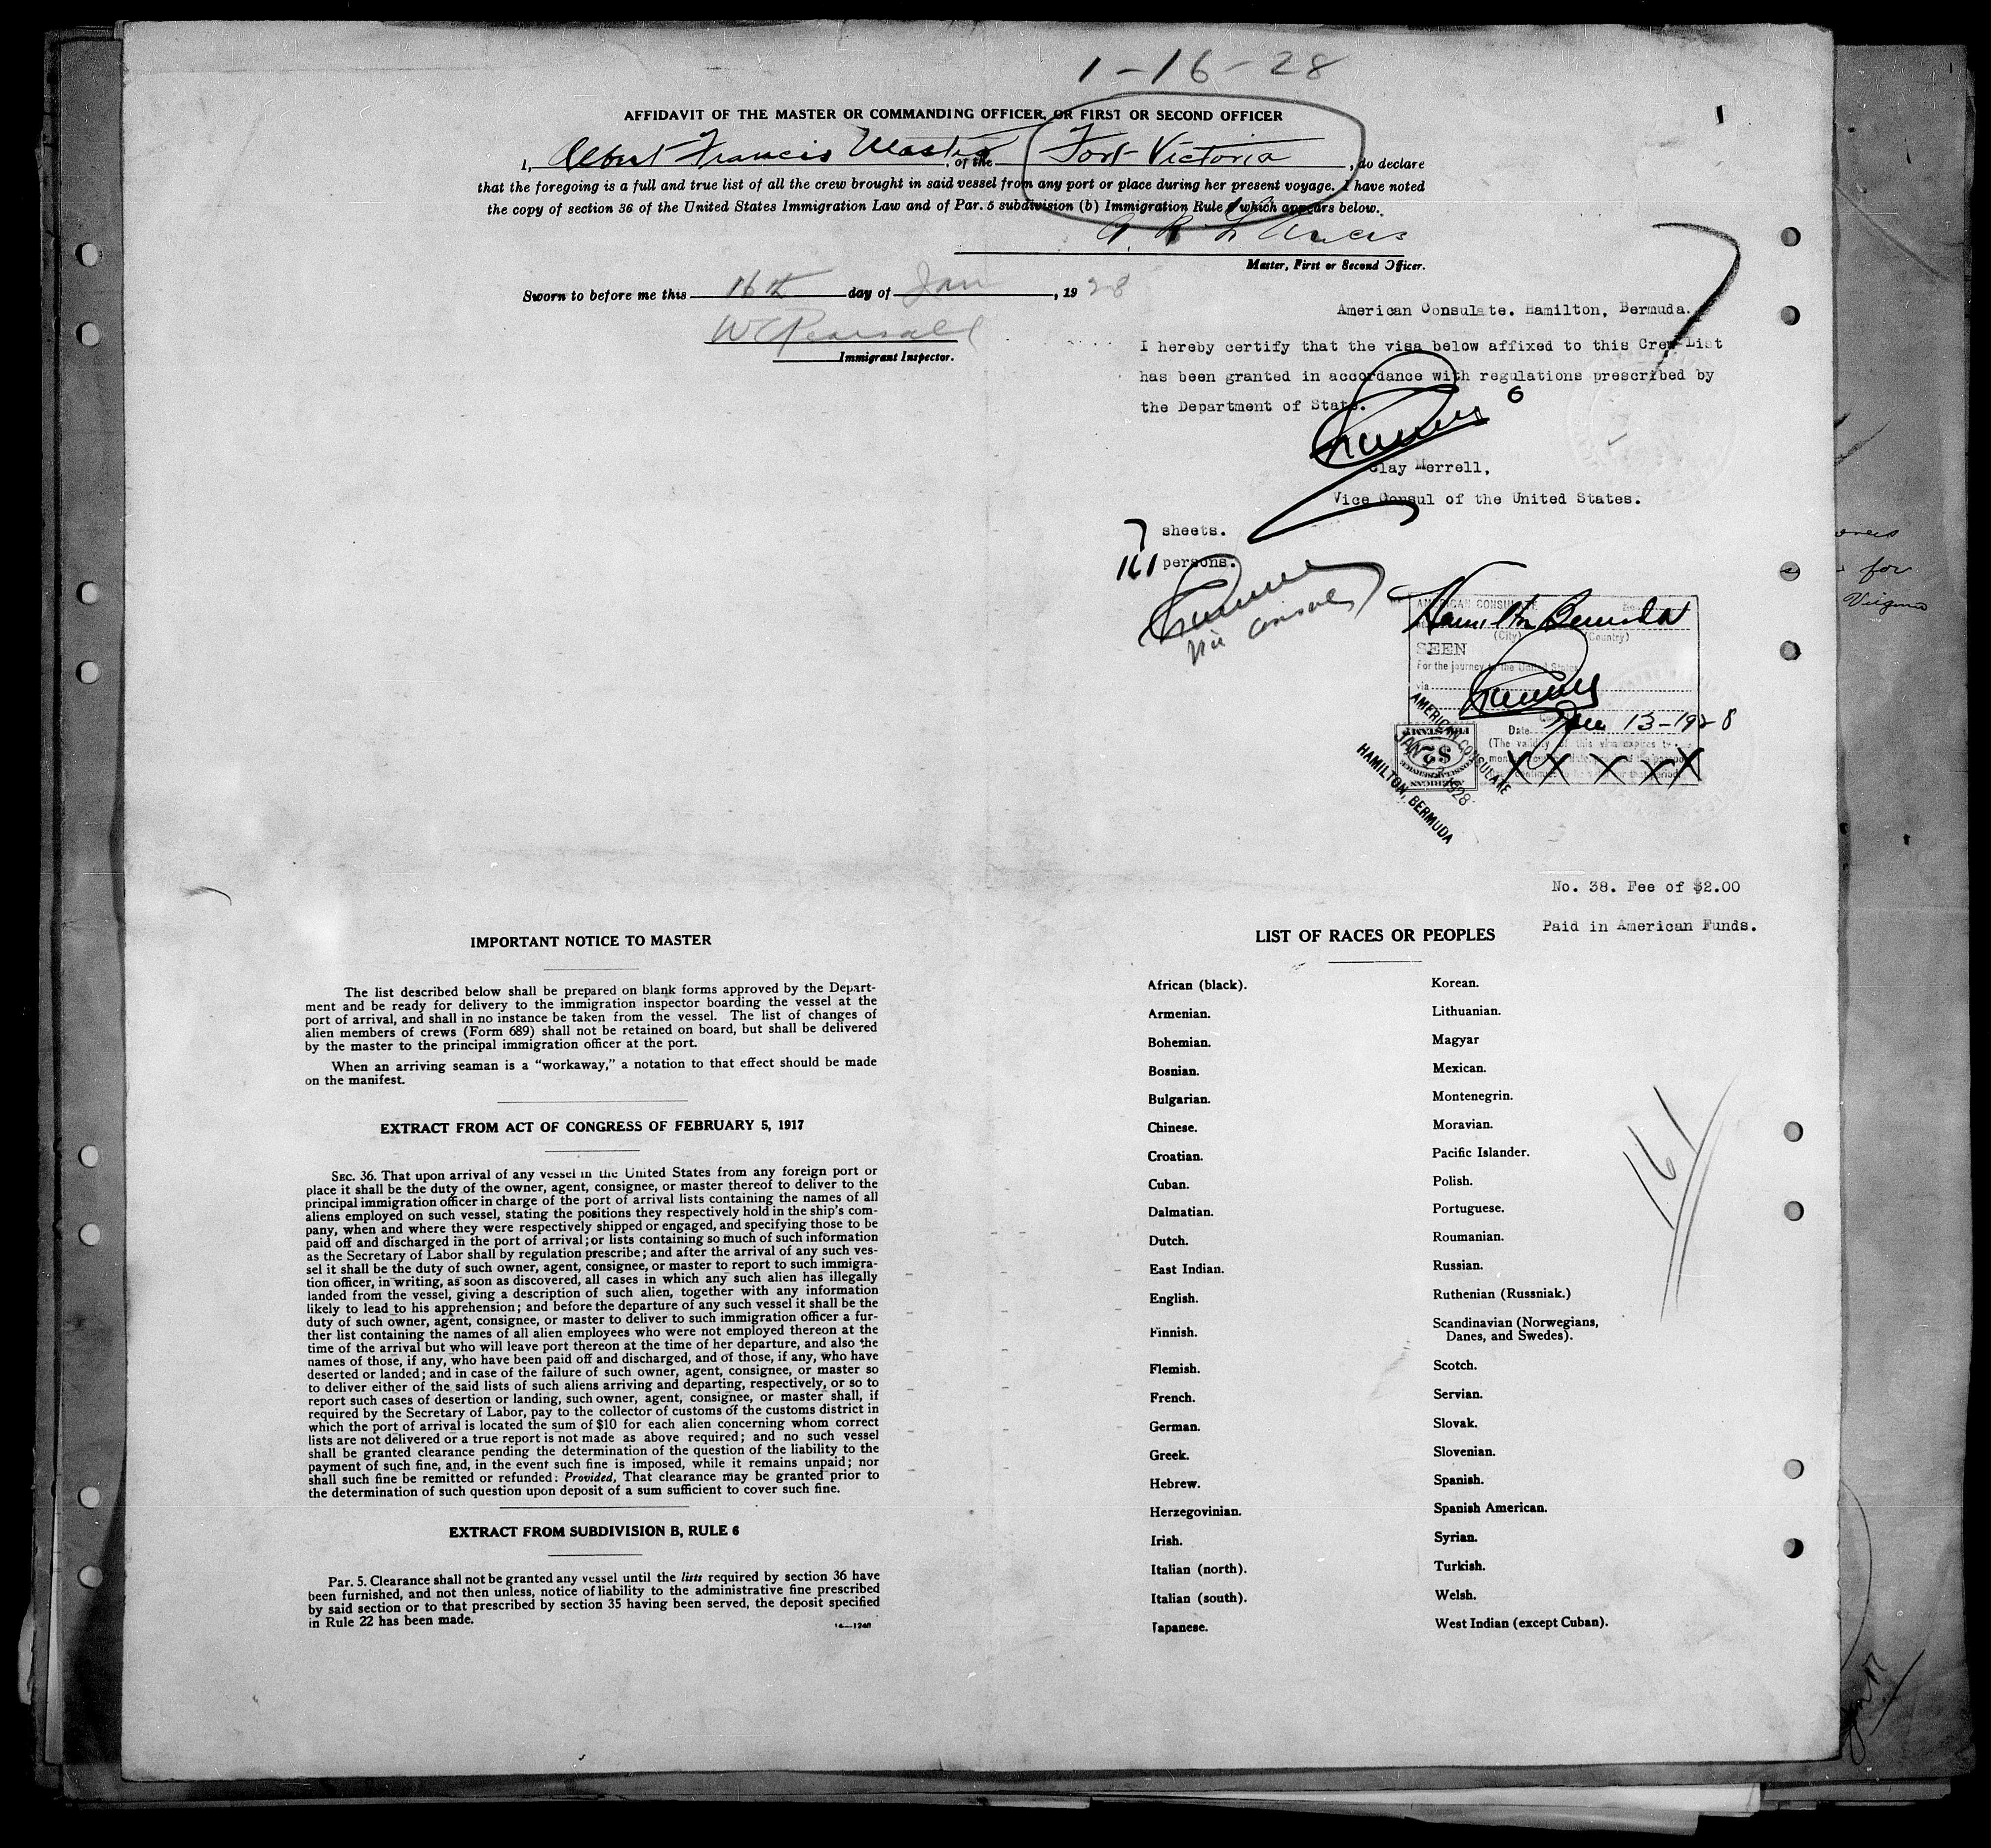 1-16-28
AFFIDAVIT OF THE MASTER OR COMMANDING OFFICER, OR FIRST OR SECOND OFFICER
I, Albert Francis Master, of the Fort Victoria, do declare
that the foregoing is a full and true list of all the crew brought in said vessel from any port or place during her present voyage. I have noted
the copy of section 36 of the United States Immigration Law and of Par. 5 subdivision (b) Immigration Rule which appears below.
Master, First or Second Officer.
Sworn to before me this 16th day of Jan, 1928
W C Pearsall
Immigrant Inspector.
American Consulate. Hamilton, Bermuda.
I hereby certify that the visa below affixed to this Crew List
has been granted in accordance with regulations prescribed by
the Department of State.
6
Clay Merrell,
Vice Consul of the United States.
7 sheets.
161 persons.
Vice Consul
AMERICAN CONSULATE
Hamilton Bermuda
(City) (Country)
SEEN
For the journey to the United States
via
Jan 13-1928
Date
(The validity of this visa expires
X X X X X
FEE STAMP
$2
AMERICAN CONSULATE
JAN 1928
HAMILTON, BERMUDA
No. 38. Fee of $2.00
Paid in American Funds.
IMPORTANT NOTICE TO MASTER
The list described below shall be prepared on blank forms approved by the Depart-
ment and be ready for delivery to the immigration inspector boarding the vessel at the
port of arrival, and shall in no instance be taken from the vessel. The list of changes of
alien members of crews (Form 689) shall not be retained on board, but shall be delivered
by the master to the principal immigration officer at the port.
When an arriving seaman is a "workaway," a notation to that effect should be made
on the manifest.
EXTRACT FROM ACT OF CONGRESS OF FEBRUARY 5, 1917
SEC. 36. That upon arrival of any vessel in the United States from any foreign port or
place it shall be the duty of the owner, agent, consignee, or master thereof to deliver to the
principal immigration officer in charge of the port of arrival lists containing the names of all
aliens employed on such vessel, stating the positions they respectively hold in the ship's com-
pany, when and where they were respectively shipped or engaged, and specifying those to be
paid off and discharged in the port of arrival; or lists containing so much of such information
as the Secretary of Labor shall by regulation prescribe; and after the arrival of any such ves-
sel it shall be the duty of such owner, agent, consignee, or master to report to such immigra-
tion officer, in writing, as soon as discovered, all cases in which any such alien has illegally
landed from the vessel, giving a description of such alien, together with any information
likely to lead to his apprehension; and before the departure of any such vessel it shall be the
duty of such owner, agent, consignee, or master to deliver to such immigration officer a fur-
ther list containing the names of all alien employees who were not employed thereon at the
time of the arrival but who will leave port thereon at the time of her departure, and also the
names of those, if any, who have been paid off and discharged, and of those, if any, who have
deserted or landed; and in case of the failure of such owner, agent, consignee, or master so
to deliver either of the said lists of such aliens arriving and departing, respectively, or so to
report such cases of desertion or landing, such owner, agent, consignee, or master shall, if
required by the Secretary of Labor, pay to the collector of customs of the customs district in
which the port of arrival is located the sum of $10 for each alien concerning whom correct
lists are not delivered or a true report is not made as above required; and no such vessel
shall be granted clearance pending the determination of the question of the liability to the
payment of such fine, and, in the event such fine is imposed, while it remains unpaid; nor
shall such fine be remitted or refunded: Provided, That clearance may be granted prior to
the determination of such question upon deposit of a sum sufficient to cover such fine.
EXTRACT FROM SUBDIVISION B, RULE 6
Par. 5. Clearance shall not be granted any vessel until the lists required by section 36 have
been furnished, and not then unless, notice of liability to the administrative fine prescribed
by said section or to that prescribed by section 35 having been served, the deposit specified
in Rule 22 has been made.
LIST OF RACES OR PEOPLES
African (black).
Armenian.
Bohemian.
Bosnian.
Bulgarian.
Chinese.
Croatian.
Cuban.
Dalmatian.
Dutch.
East Indian.
English.
Finnish.
Flemish.
French.
German.
Greek.
Hebrew.
Herzegovinian.
Irish.
Italian (north).
Italian (south).
Japanese.
Korean.
Lithuanian.
Magyar
Mexican.
Montenegrin.
Moravian.
Pacific Islander.
Polish.
Portuguese.
Roumanian.
Russian.
Ruthenian (Russniak.)
Scandinavian (Norwegians,
Danes, and Swedes).
Scotch.
Servian.
Slovak.
Slovenian.
Spanish.
Spanish American.
Syrian.
Turkish.
Welsh.
West Indian (except Cuban).
161
for
Virginia